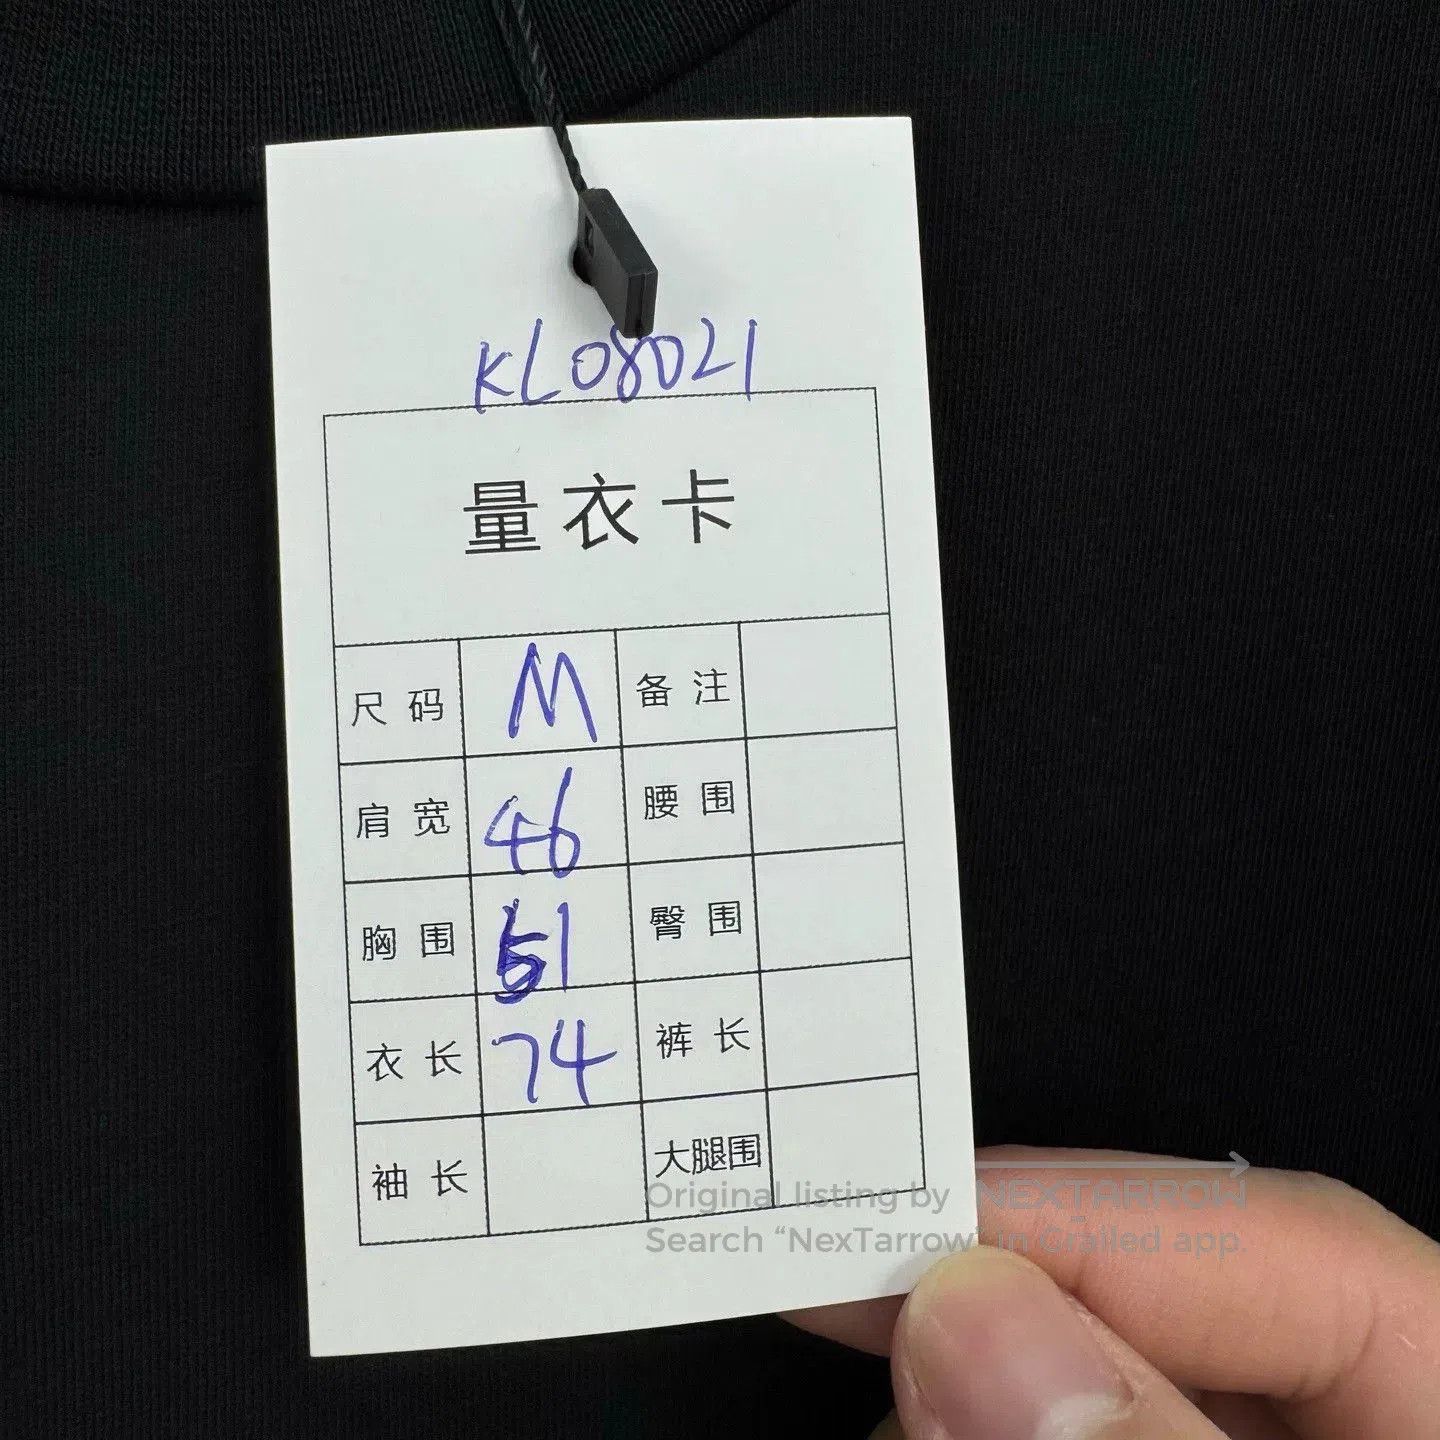 KL08021
量衣卡
尺码 M 备注
肩宽 46 腰围
胸围 51 臀围
衣长 74 裤长
袖长 大腿围
Original listing by NEXTARROW
Search “NexTarrow” in Grailed app.